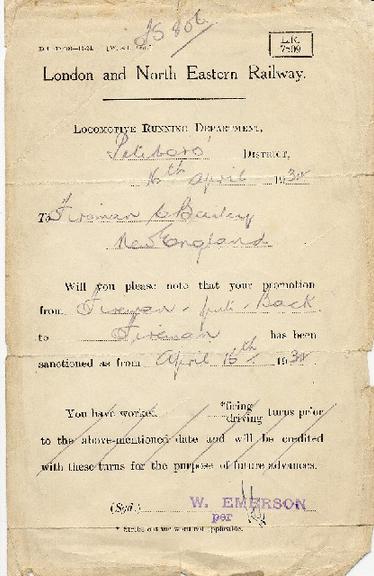 L.R.
7599
London and North Eastern Railway.
LOCOMOTIVE RUNNING DEPARTMENT,
Peterboro' DISTRICT,
16th April 1934
To Fireman C Bailey
New England
Will you please note that your promotion
from Fireman - put - Back
to Fireman has been
sanctioned as from April 15th 1934
You have worked *firing
driving turns prior
to the above-mentioned date and will be credited
with these turns for the purpose of future advances.
(Sgd.) W. EMERSON
per
* Strike out the word not applicable.